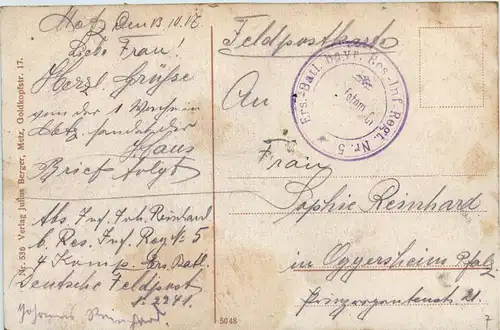 Metz Den 13.10.17.
Liebe Frau!
Herzl. Grüsse
von der 1 Woche in
Metz sendet der
Hans
Brief folgt
Abs. Inf. Joh. Reinhard
b. Res. Inf. Reg № 5
4 Komp. Ers. Batl.
Deutsche Feldpost
№ 2241.
Johannes Reinhard
Feldpostkarte
An
Frau
Sophie Reinhard
in Oggersheim Pfalz
Prinzregentenstr. 21.
Ers.-Batl. bayr. Res.-Inf.-Regt. Nr. 5
Nr. 536 Verlag Julius Berger, Metz, Goldkopfstr. 17.
5048
7